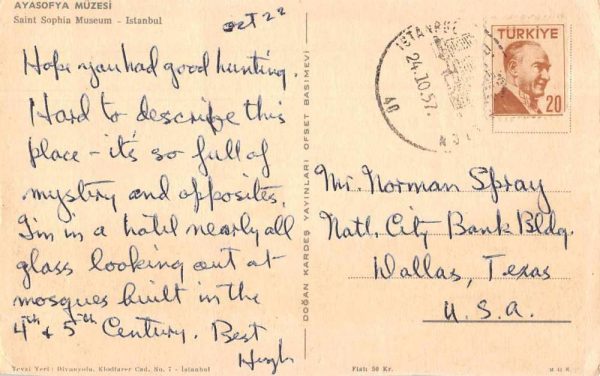 AYASOFYA MÜZESİ
Saint Sophia Museum - Istanbul
Oct 22
Hope you had good hunting.
Hard to describe this
place - it's so full of
mystery and opposites.
I'm in a hotel nearly all
glass looking out at
mosques built in the
4th & 5th Century. Best
Hugh
Yeni Yeri : Divanyolu, Klodfarer Cad. No. 7 - İstanbul
DOĞAN KARDEŞ YAYINLARI OFSET BASIMEVİ
İSTANBUL
24.10.57.
TÜRKİYE
20
Mr. Norman Spray
Natl. City Bank Bldg.
Dallas, Texas
U.S.A.
Fiatı 50 Kr.